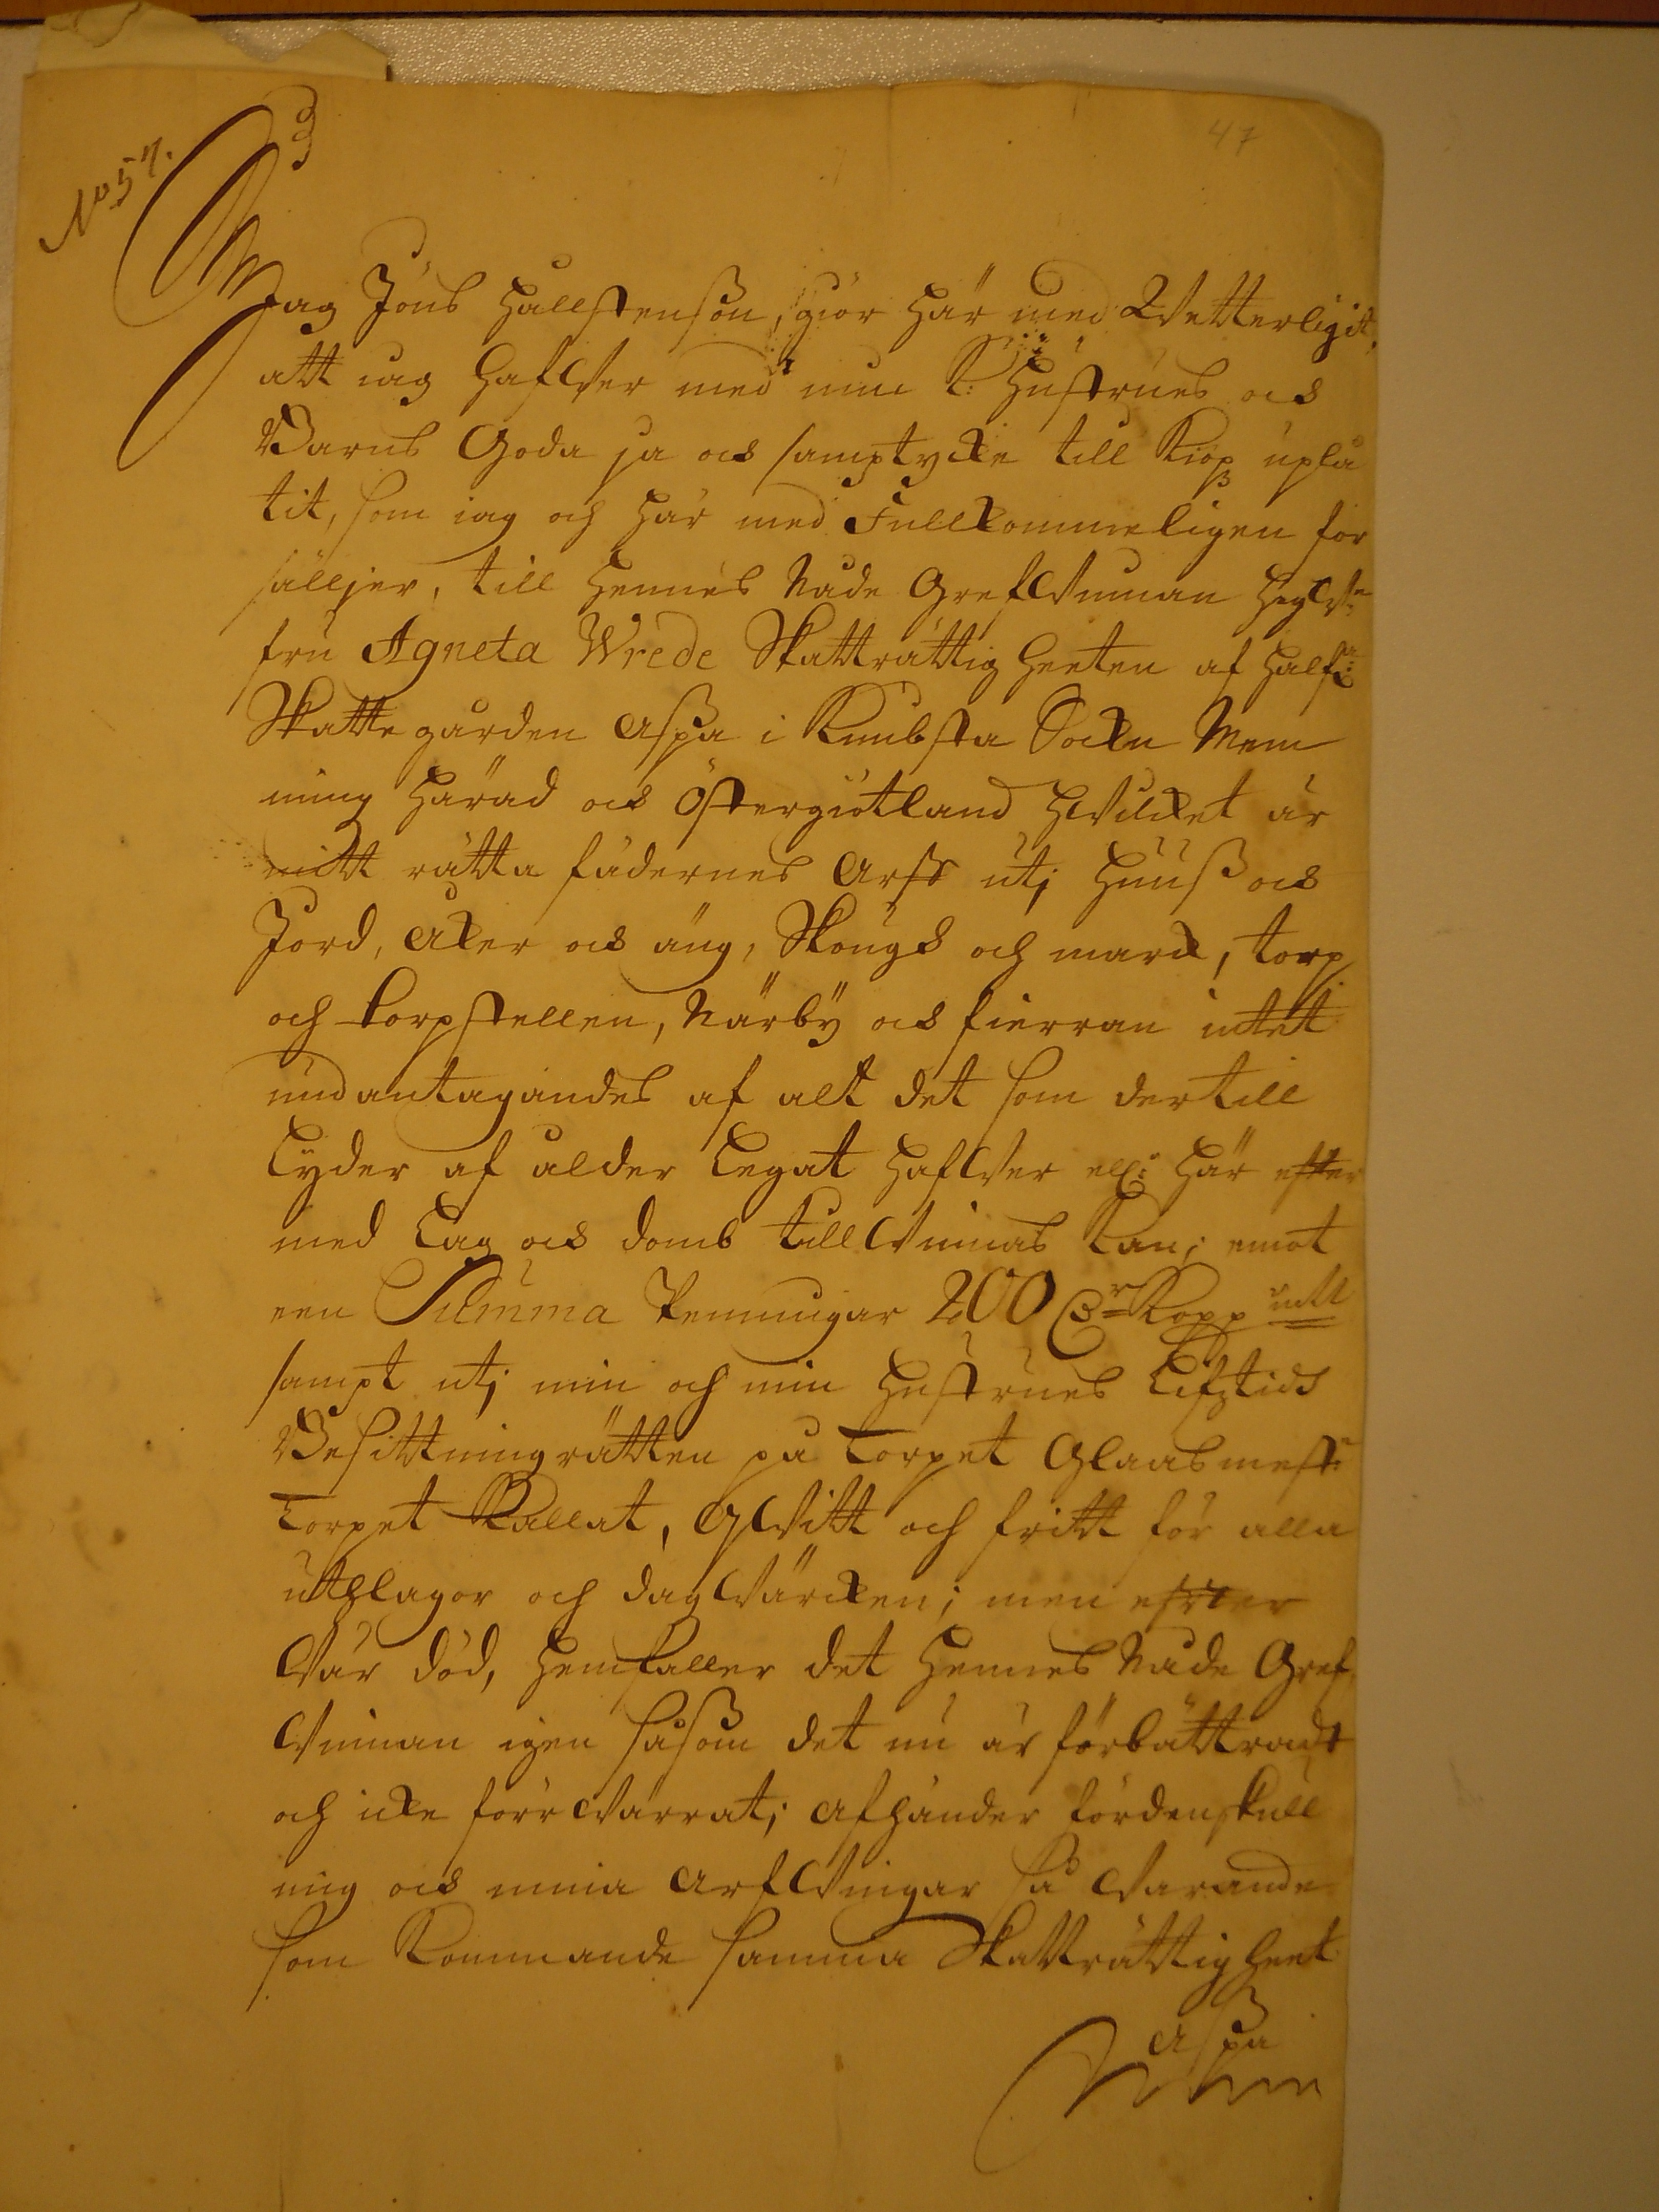 47
No 57.
Jag Jöns Hallstensson, giör här med Wetterligit,
att iag hafwer med min k: Hustrues och
Barns Goda ja och samptycke till Kiöp uplå
tit, som iag och här med Fullkommeligen för
sälljer, till Hennes Nåde Grefwinnan Högw:ne
fru Agneta Wrede Skatträttigheeten af Half:a
Skattegården Aspa i Kimbsta Sockn Mem
ming Härad och Östergiötland Hwilcket är
mitt rätta fädernes Arff utj Huuß och
Jord, Åker och äng, Skougs och marck, torp
och torpställen, Närby och fierran intet
undantagandes af alt det som dertill
Lyder af ålder Legat hafwer ell: här efter
med Lag och domb till Winnas Kan; emot
een Summa Penningar 200 D:r Kopp mtt
sampt utj min och min Hustrues Lifztids
Besittningrätten på Torpet Glaasmest:r
Torpet Kallat, qwitt och fritt för alla
uthlagor och dagWärcken; men efter
Wår död, Hemfaller det Hennes Nåde Gref
Winnan igen såsom det nu är förbättradt
och icke förrWärrat; Afhänder fördenskull
mig och mina Arfwingar så Warande
som Kommande samma Skatträttigheet
Aspa